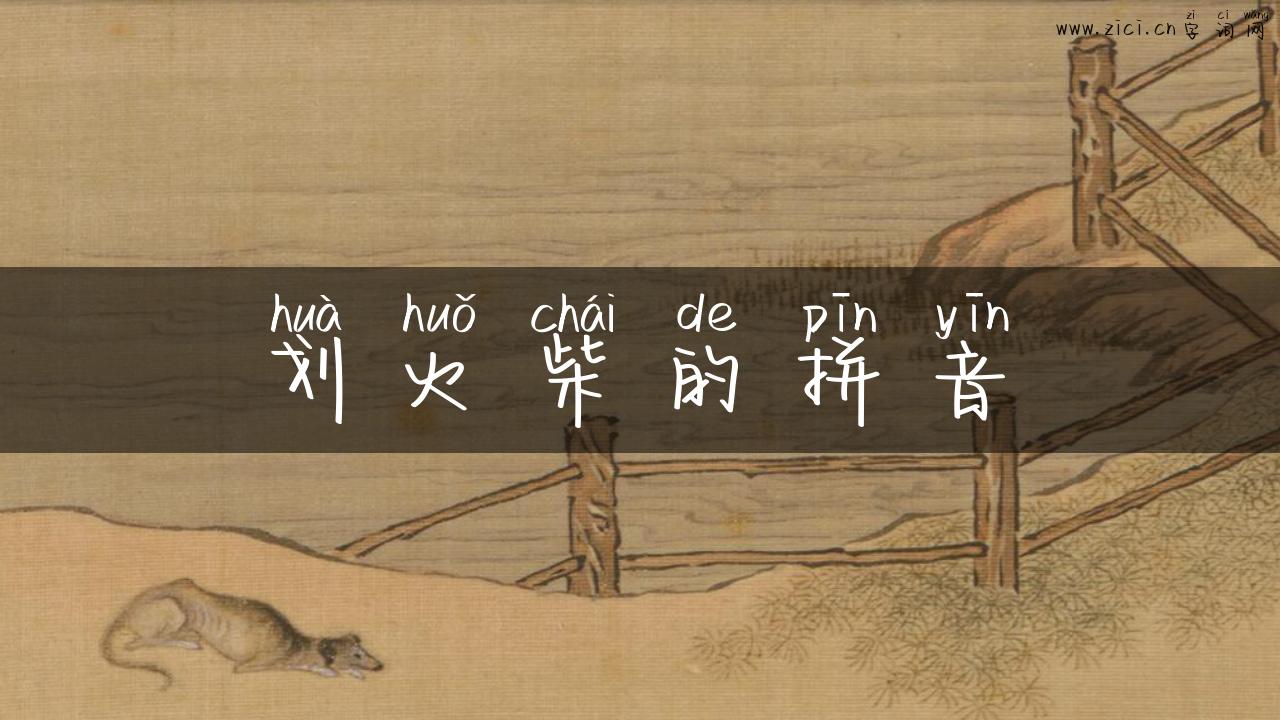 zì cí wǎng
www.zici.cn 字词网
huà huǒ chái de pīn yīn
划火柴的拼音